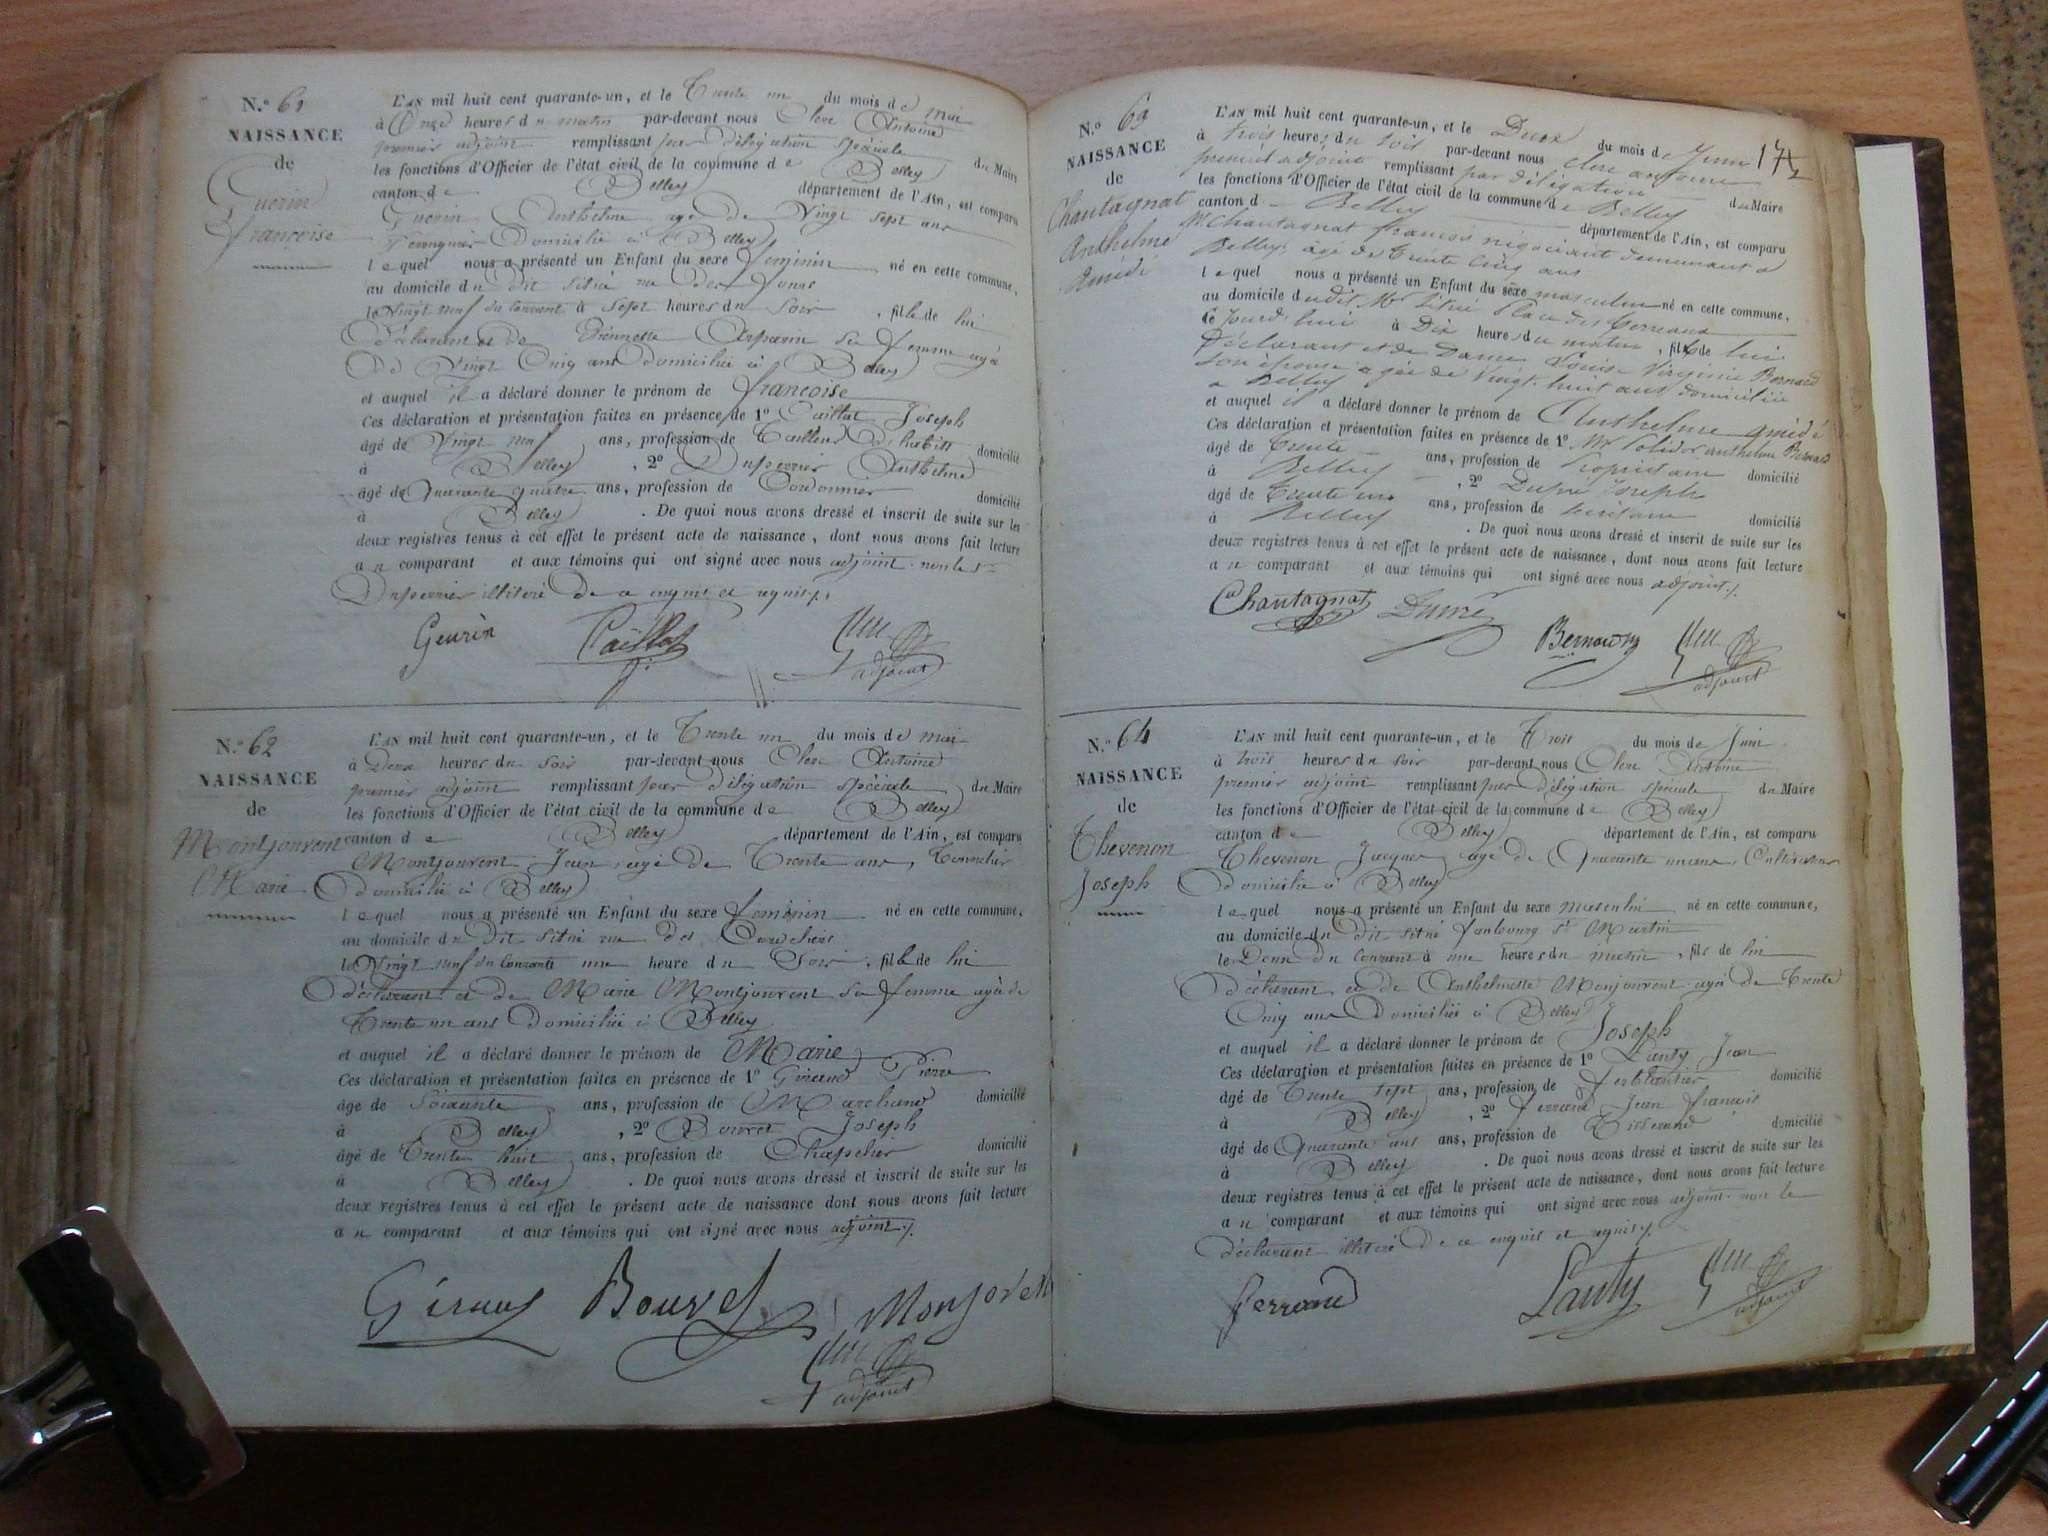 N.º 61
NAISSANCE
de
Guerin
françoise
L'AN mil huit cent quarante-un, et le Trente un du mois de mai
à Onze heures du matin par-devant nous Clerc Antoine
premier adjoint remplissant par délégation spéciale du Maire
les fonctions d'Officier de l'état civil de la commune de Belley
canton de Belley département de l'Ain, est comparu
Guerin Anthelme agé de Vingt sept ans
Domicilié à Belley
lequel nous a présenté un Enfant du sexe feminin né en cette commune,
au domicile du dit situé rue des fours
le Vingt neuf du Courant à sept heures du soir, fille de lui
Déclarant et de Pierrette sa femme agée
De Vingt Cinq ans domiciliée à Belley
et auquel il a déclaré donner le prénom de françoise
Ces déclaration et présentation faites en présence de 1º Caillat Joseph
âgé de Vingt neuf ans, profession de Tailleur d'habits domicilié
à Belley, 2º Duperrier Anthelme
âgé de Quarante quatre ans, profession de Cordonnier domicilié
à Belley. De quoi nous avons dressé et inscrit de suite sur les
deux registres tenus à cet effet le présent acte de naissance, dont nous avons fait lecture
au comparant et aux témoins qui ont signé avec nous adjoint. non le sr
Duperrier illiteré De ce enquis et requis ./.
Geurin Caillat Clerc
adjoint
N.º 62
NAISSANCE
de
Montjouvent
Marie
L'AN mil huit cent quarante-un, et le Trente un du mois de mai
à Deux heures du soir par-devant nous Clerc Antoine
premier adjoint remplissant par délégation spéciale du Maire
les fonctions d'Officier de l'état civil de la commune de Belley
canton de Belley département de l'Ain, est comparu
Montjouvent Jean agé de Trente ans, Tonnelier
Domicilié à Belley
lequel nous a présenté un Enfant du sexe feminin né en cette commune,
au domicile du dit situé rue des
le Vingt neuf du Courant à une heure du Soir, fille de lui
Déclarant et de Marie Montjouvent sa femme agée de
Trente un ans Domiciliée à Belley
et auquel il a déclaré donner le prénom de Marie
Ces déclaration et présentation faites en présence de 1º Giraud Pierre
âgé de Soixante ans, profession de Marchand domicilié
à Belley, 2º Bouvet Joseph
âgé de Trente huit ans, profession de Chapelier domicilié
à Belley. De quoi nous avons dressé et inscrit de suite sur les
deux registres tenus à cet effet le présent acte de naissance dont nous avons fait lecture
au comparant et aux témoins qui ont signé avec nous adjoint ./.
Giraud Bouvet Monjoven
Clerc
adjoint
174
N.º 63
NAISSANCE
de
Chautagnat
Anthelme
Amédé
L'AN mil huit cent quarante-un, et le Deux du mois de Juin
à trois heures du soir par-devant nous clerc antoine
premier adjoint remplissant par délégation du Maire
les fonctions d'Officier de l'état civil de la commune de Belley
canton de Belley département de l'Ain, est comparu
Mr Chautagnat françois négociant demeurant à
Belley, âgé de trente cinq ans
lequel nous a présenté un Enfant du sexe masculin né en cette commune,
au domicile du dit Mr situé Place des Terreaux
ce jourd'hui à Dix heures du matin, fils de lui
Déclarant et de Dame Louise Virginie Bernard
son épouse agée de Vingt huit ans domiciliée
à Belley
et auquel il a déclaré donner le prénom de Anthelme amédé
Ces déclaration et présentation faites en présence de 1º Mr Polidor anthelme Bernard
âgé de Trente ans, profession de Propriétaire domicilié
à Belley, 2º Joseph
âgé de Trente un ans, profession de domicilié
à Belley. De quoi nous avons dressé et inscrit de suite sur les
deux registres tenus à cet effet le présent acte de naissance, dont nous avons fait lecture
au comparant et aux témoins qui ont signé avec nous adjoint ./.
Chautagnat Bernard Clerc
adjoint
N.º 64
NAISSANCE
de
Thevenon
Joseph
L'AN mil huit cent quarante-un, et le Trois du mois de Juin
à trois heures du soir par-devant nous Clerc Antoine
premier adjoint remplissant par délégation spéciale du Maire
les fonctions d'Officier de l'état civil de la commune de Belley
canton de Belley département de l'Ain, est comparu
Thevenon Jacques agé de Quarante un ans, Cultivateur
Domicilié à Belley
lequel nous a présenté un Enfant du sexe masculin né en cette commune,
au domicile du dit situé faubourg St Martin
le Deux du Courant à une heures du matin, fils de lui
Déclarant et de Anthelmette Monjouvent agée de Trente
Cinq ans Domiciliée à Belley
et auquel il a déclaré donner le prénom de Joseph
Ces déclaration et présentation faites en présence de 1º Lanty Jean
âgé de Trente sept ans, profession de ferblantier domicilié
à Belley, 2º ferrand Jean françois
âgé de Quarante ans ans, profession de Tisserand domicilié
à Belley. De quoi nous avons dressé et inscrit de suite sur les
deux registres tenus à cet effet le présent acte de naissance, dont nous avons fait lecture
au comparant et aux témoins qui ont signé avec nous adjoint. non le
Déclarant illiteré De ce enquis et requis ./.
ferrand Lanty Clerc
adjoint